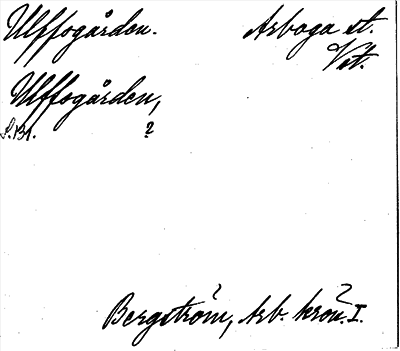 Ulffogården. Arboga st.
Vstm.
Ulffogården,
S. 131. ?
Bergström, Arb. krön. I.